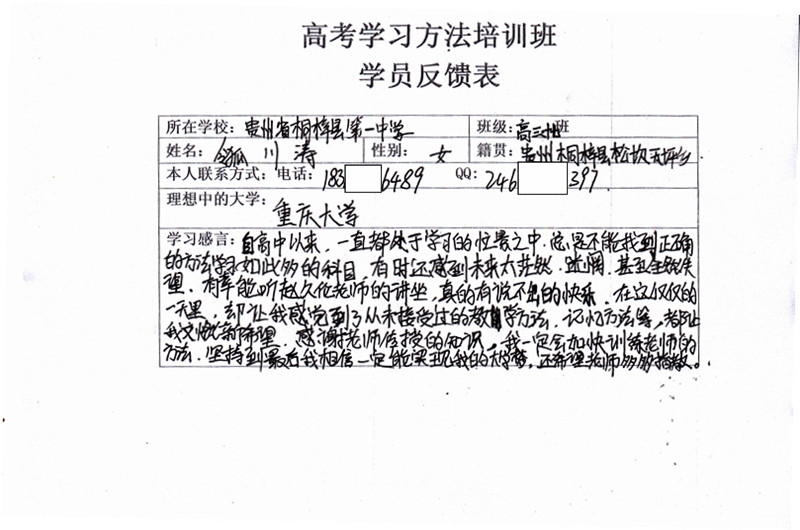 高考学习方法培训班
学员反馈表
所在学校：贵州省桐梓县第一中学 班级：高三 班
姓名：令狐川涛 性别：女 籍贯：贵州桐梓县松坎 乡
本人联系方式：电话：183 6489 QQ：246 397
理想中的大学：重庆大学
学习感言：自高中以来，一直都处于学习的忙碌之中，总是不能找到正确
的方法学习如此多的科目，有时还感到未来太茫然、迷惘、甚至全然失
望，有幸能听赵 老师的讲坐，真的有说不出的快乐，在这仅仅的
一天里，却让我感觉到了从未接受过的教学方法，记忆方法等，都让
我又燃 希望，感谢老师传授的知识，我一定会加快训练老师的
方法，坚持到最后我相信一定能实现我的大学梦，还希望老师多多指教。